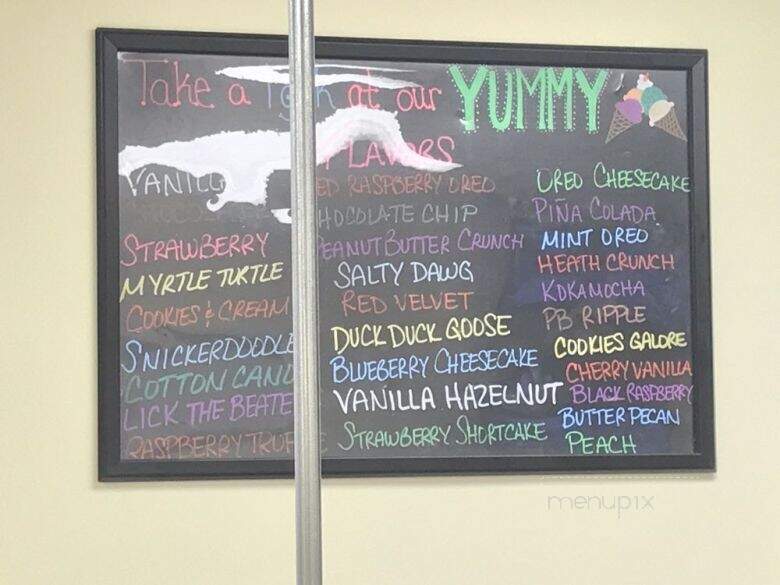 Take a look at our YUMMY
FLAVORS
VANILL
STRAWBERRY
MYRTLE TURTLE
COOKIES & CREAM
SNICKERDOODLE
COTTON CAND
LICK THE BEATE
RASPBERRY TRUF
ED RASPBERRY OREO
HOCOLATE CHIP
PEANUT BUTTER CRUNCH
SALTY DAWG
RED VELVET
DUCK DUCK GOOSE
BLUEBERRY CHEESECAKE
VANILLA HAZELNUT
STRAWBERRY SHORTCAKE
OREO CHEESECAKE
PIÑA COLADA
MINT OREO
HEATH CRUNCH
KOKAMOCHA
PB RIPPLE
COOKIES GALORE
CHERRY VANILLA
BLACK RASPBERRY
BUTTER PECAN
PEACH
menupix